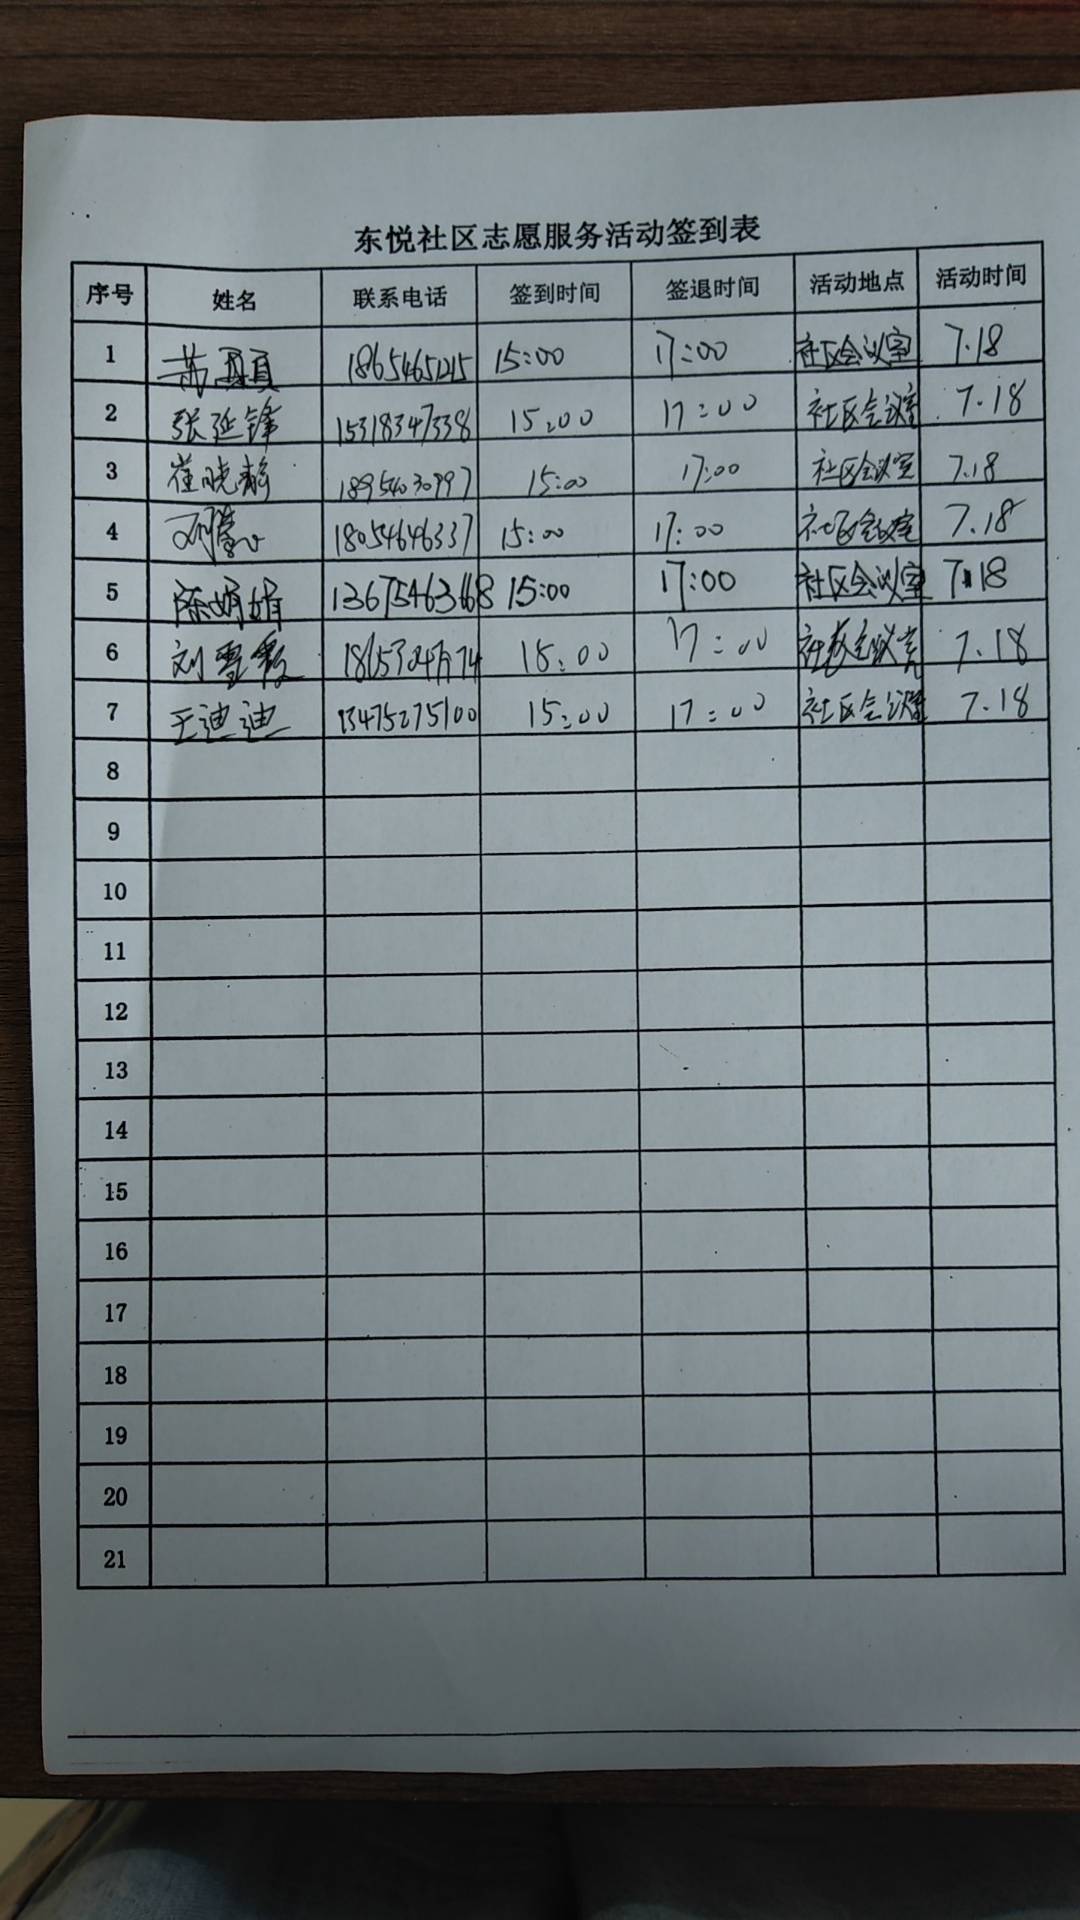 东悦社区志愿服务活动签到表
序号 姓名 联系电话 签到时间 签退时间 活动地点 活动时间
1 15:00 17:00 社区会议室 7.18
2 张延锋 15318347338 15:00 17:00 社区会议室 7.18
3 崔晓静 18954030997 15:00 17:00 社区会议室 7.18
4 18054646337 15:00 17:00 社区会议室 7.18
5 陈娟娟 13675463668 15:00 17:00 社区会议室 7.18
6 刘雪 15:00 17:00 社区会议室 7.18
7 王迪迪 13475275100 15:00 17:00 社区会议室 7.18
8
9
10
11
12
13
14
15
16
17
18
19
20
21